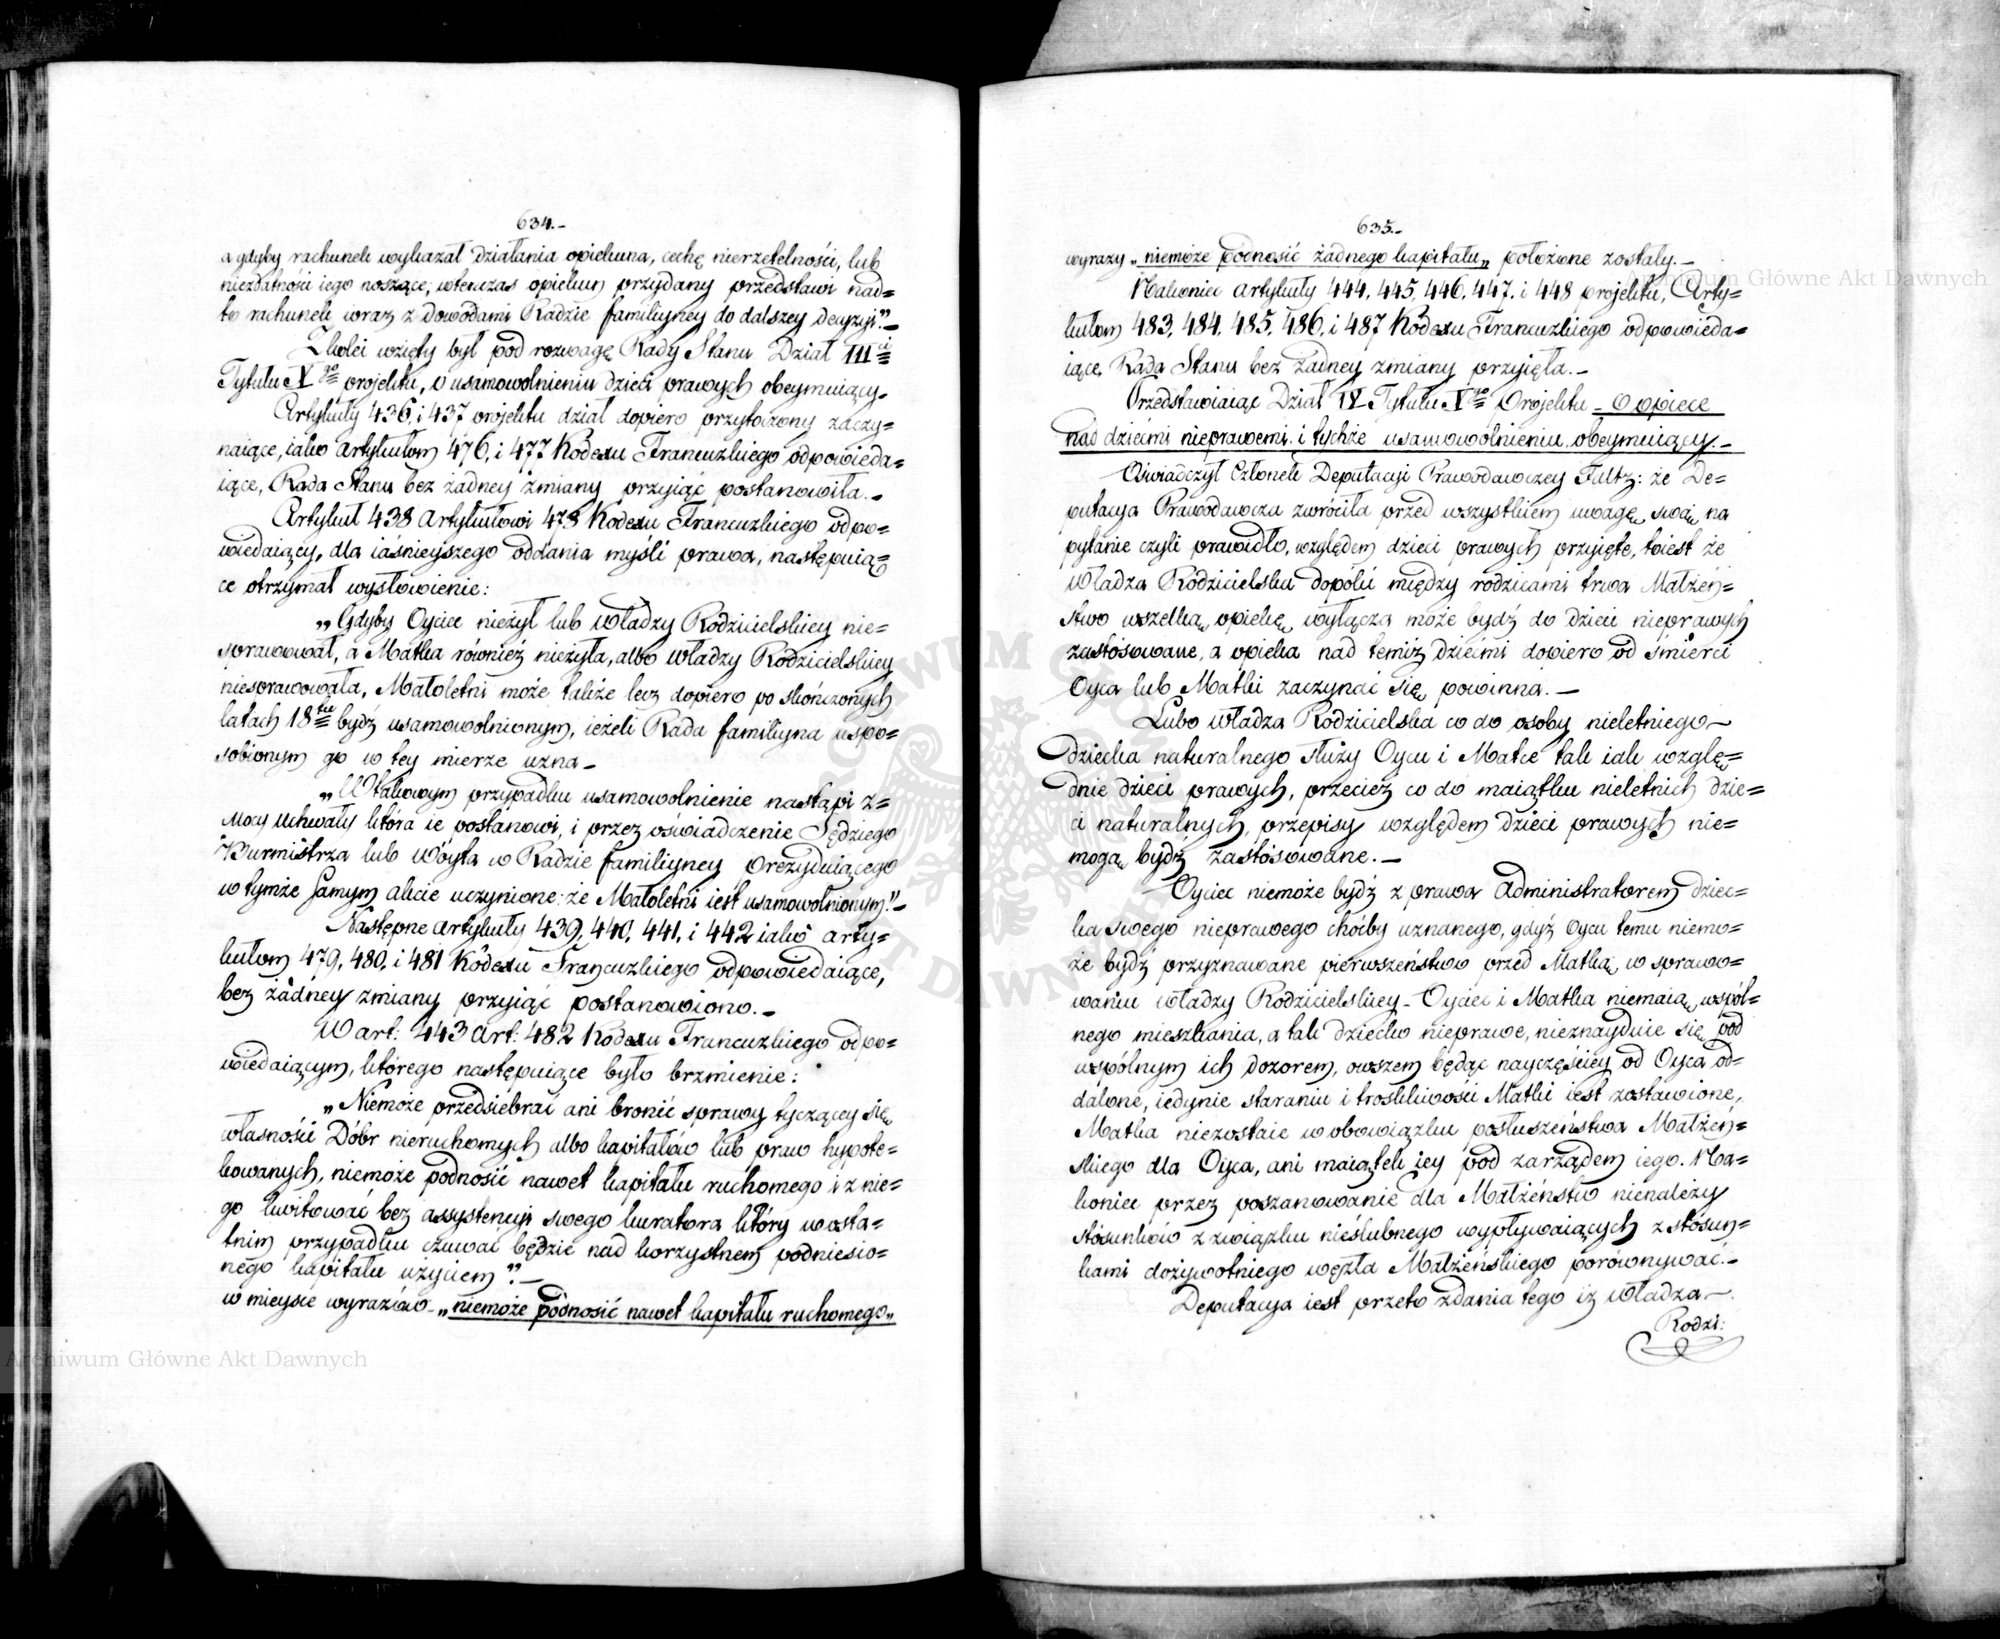 634.-
a gdyby rachunek wykazał działania opiekuna, cechę nierzetelności, lub
niezdatności iego noszące; wtenczas opiekun przydany przedstawi nad=
to rachunek wraz z dowodami Radzie familiyney do dalszey decyzyi".-
Zkolei wzięty był pod rozwagę Rady Stanu Dział III ci
Tytułu V go projektu, o usamowolnieniu dzieci prawych obeymuiący.
Artykuły 436, i 437 projektu dział dopiero przytoczony zaczy=
naiące, iako Artykułom 476, i 477 Kodexu Francuzkiego odpowieda=
iące, Rada Stanu bez żadney zmiany przyiąć postanowiła.-
Artykuł 438 Artykułowi 478 Kodexu Francuzkiego odpo=
wiedaiący, dla iaśnieyszego oddania myśli prawa, następuią=
ce otrzymał wysłowienie:
„Gdyby Oyciec nieżył lub władzy Rodzicielskiey nie=
sprawował, a Matka również nieżyła, albo władzy Rodzicielskiey
niesprawowała, Małoletni może także lecz dopiero po skończonych
latach 18tu bydź usamowolnionym, ieżeli Rada familiyna uspo=
sobionym go w tey mierze uzna -
„W takowym przypadku usamowolnienie nastąpi z=
mocy uchwały która ie postanowi, i przez oświadczenie Sędziego
Burmistrza lub Wóyta w Radzie familiyney prezyduiącego
w tymże samym akcie uczynione: że Małoletni iest usamowolnionym."-
Następne Artykuły 439, 440, 441, i 442 iako arty=
kułom 479, 480, i 481 Kodexu Francuzkiego odpowiedaiące,
bez żadney zmiany przyiąć postanowiono.-
W art: 443 art: 482 Kodexu Francuzkiego odpo=
wiedaiącym, którego następuiące było brzmienie:
„Niemoże przedsiebrać ani bronić sprawy tyczącey się
własności Dóbr nieruchomych albo kapitałów lub praw hypote=
kowanych, niemoże podnosić nawet kapitału ruchomego i z nie=
go kwitować bez assystencyi swego kuratora który w osta=
tnim przypadku czuwać będzie nad korzystnem podniesio=
nego kapitału użyciem".-
w mieysce wyrazów - „niemoże podnosić nawet kapitału ruchomego"
635.-
wyrazy „niemoże podnosić żadnego kapitału„ położone zostały.-
Nakoniec artykuły 444, 445, 446, 447, i 448 projektu, Arty=
kułom 483, 484, 485, 486, i 487 Kodexu Francuzkiego odpowieda=
iące, Rada Stanu bez żadney zmiany przyięła.-
Przedstawiaiąc Dział IV Tytułu V go Projektu - o opiece
nad dziećmi nieprawemi i tychże usamowolnieniu obeymuiący.-
Oświadczył Członek Deputacyi Prawodawczey Faltz: że De=
putacya Prawodawcza zwróciła przed wszystkiem uwagę swą na
pytanie czyli prawidło, względem dzieci prawych przyięte, toiest że
władza Rodzicielska dopóki między rodzicami trwa Małżeń=
stwo wszelką opiekę wyłącza może bydź do dzieci nieprawych
zastósowane, a opieka nad temiż dziećmi dopiero od śmierci
Oyca lub Matki zaczynać się powinna.-
Lubo władza Rodzicielska co do osoby nieletniego
dziecka naturalnego służy Oycu i Matce tak iak wzglę=
dnie dzieci prawych, przecież co do maiątku nieletnich dzie=
ci naturalnych, przepisy względem dzieci prawych nie=
mogą bydź zastósowane.-
Oyciec niemoże bydź z prawa Administratorem dziec=
ka swego nieprawego choćby uznanego, gdyż Oycu temu niemo=
że bydź przyznawane pierwszeństwo przed Matką w sprawo=
waniu władzy Rodzicielskiey - Oyciec i Matka niemaią wspól=
nego mieszkania, a tak dziecko nieprawe, nieznayduie się pod
wspólnym ich dozorem, owszem będąc nayczęściey od Oyca od=
dalone, iedynie staraniu i troskliwości Matki iest zostawione,
Matka niezostaie w obowiązku posłuszeństwa Małżeń=
skiego dla Oyca, ani maiątek iey pod zarządem iego. Na=
koniec przez poszanowanie dla Małżeństw nienależy
stósunków z związku nieślubnego wypływaiących z stósun=
kami dożywotniego węzła Małżeńskiego porównywać.-
Deputacya iest przeto zdania tego iż władza
Rodzi:
Archiwum Główne Akt Dawnych
Archiwum Główne Akt Dawnych
ARCHIWUM GŁÓWNE AKT DAWNYCH